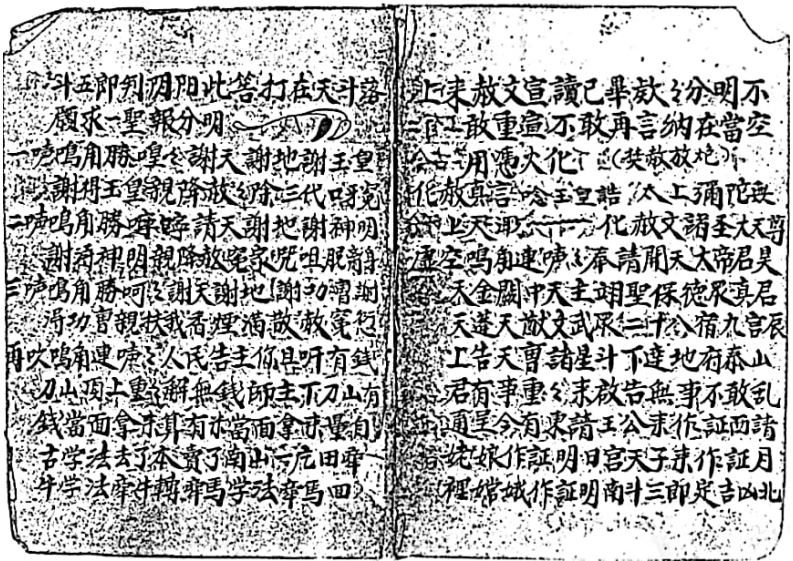 上来赦文宣讀已畢赦々分明不
敢重宣不敢再言納在當空
用憑火化（焚赦放炮）
化赦真言唸玉皇誥太上彌陀無
上天化赦文諸至大天尊
虛空鳴角連咦々奉請開天大帝君昊
天金闕中天主翊聖保德衆真君
天蓬天猷文武衆二十八宿九宮辰
上告天曹諸星斗下達地府泰山
君有事重々来啟告無事不敢乱
通呈今有東請王公来作証西請
姥娘作証明日宮天子来作証月
裡嫦娥作証明南斗三郎定吉凶北
斗五郎判阴阳此筶打在天斗落
願求一聖報分明
一声鳴角勝喤々謝天謝地謝玉皇
謝得玉皇親降赦々除三代呀冤
二声鳴角勝請天謝地謝神明
謝得神明親降赦冤家咒咀脱離身
三声鳴角勝呵々謝天謝地謝功曹謝
得功曹親扶我香煙滿散赦冤愆
再吹鳴角連咦々人民告主你且听有錢
刀山頂上重々解無錢師主下刀山有
錢當面拿来算有米當面拿来量自
古学法去了本賣了南山一庄田弃
牛学法弃牛轉弃馬学法弃馬回